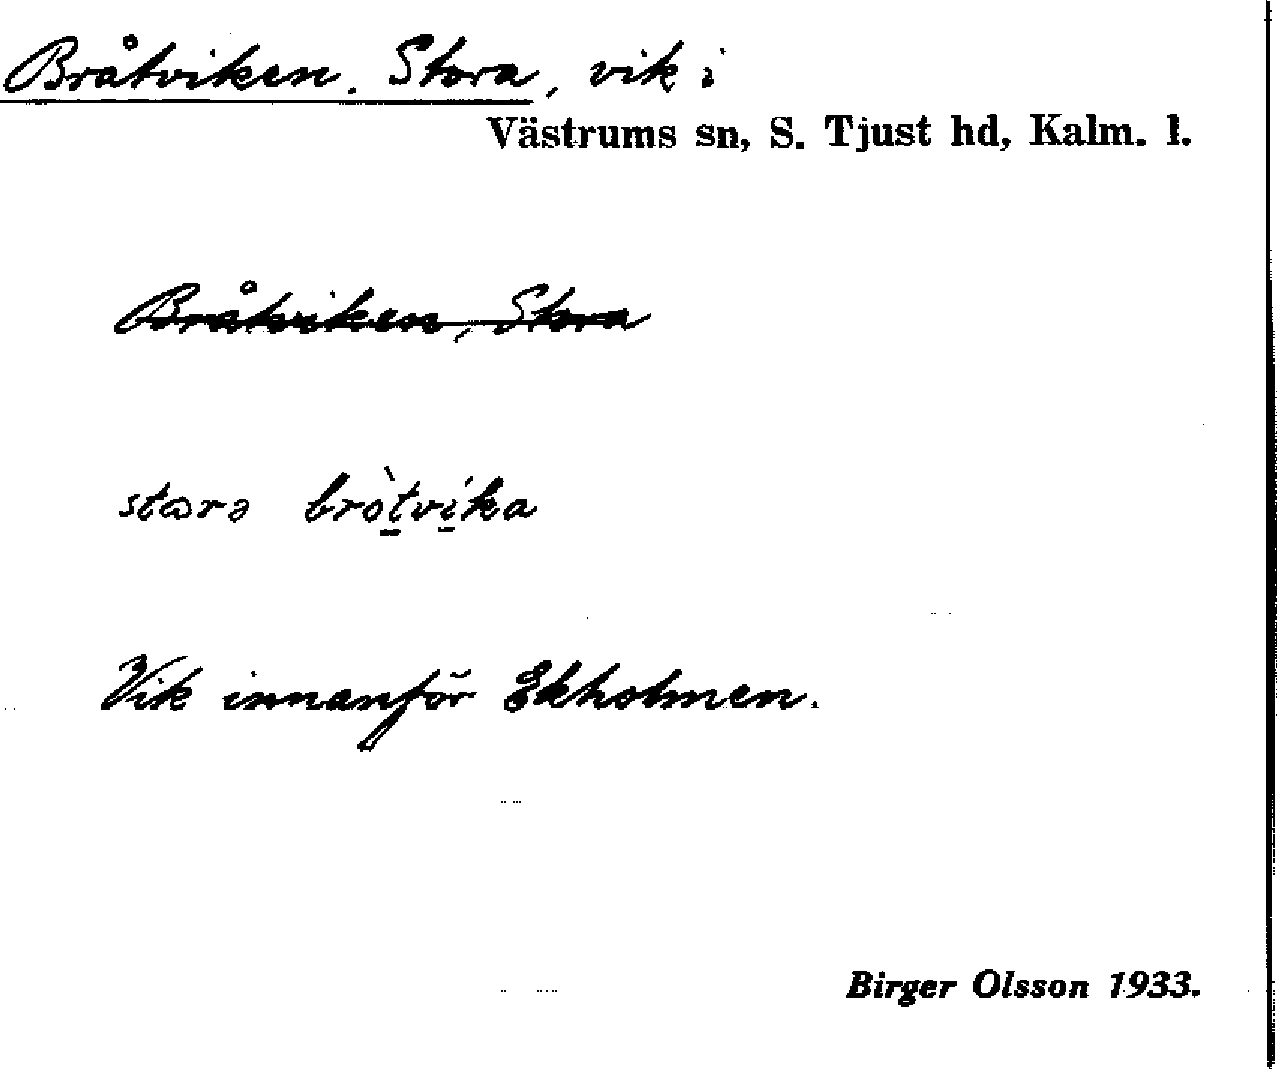 Bråtviken, Stora, vik i
Västrums sn, S. Tjust hd, Kalm. l.
Bråtviken, Stora
storə bròtvika
Vik innanför Ekholmen.
Birger Olsson 1933.